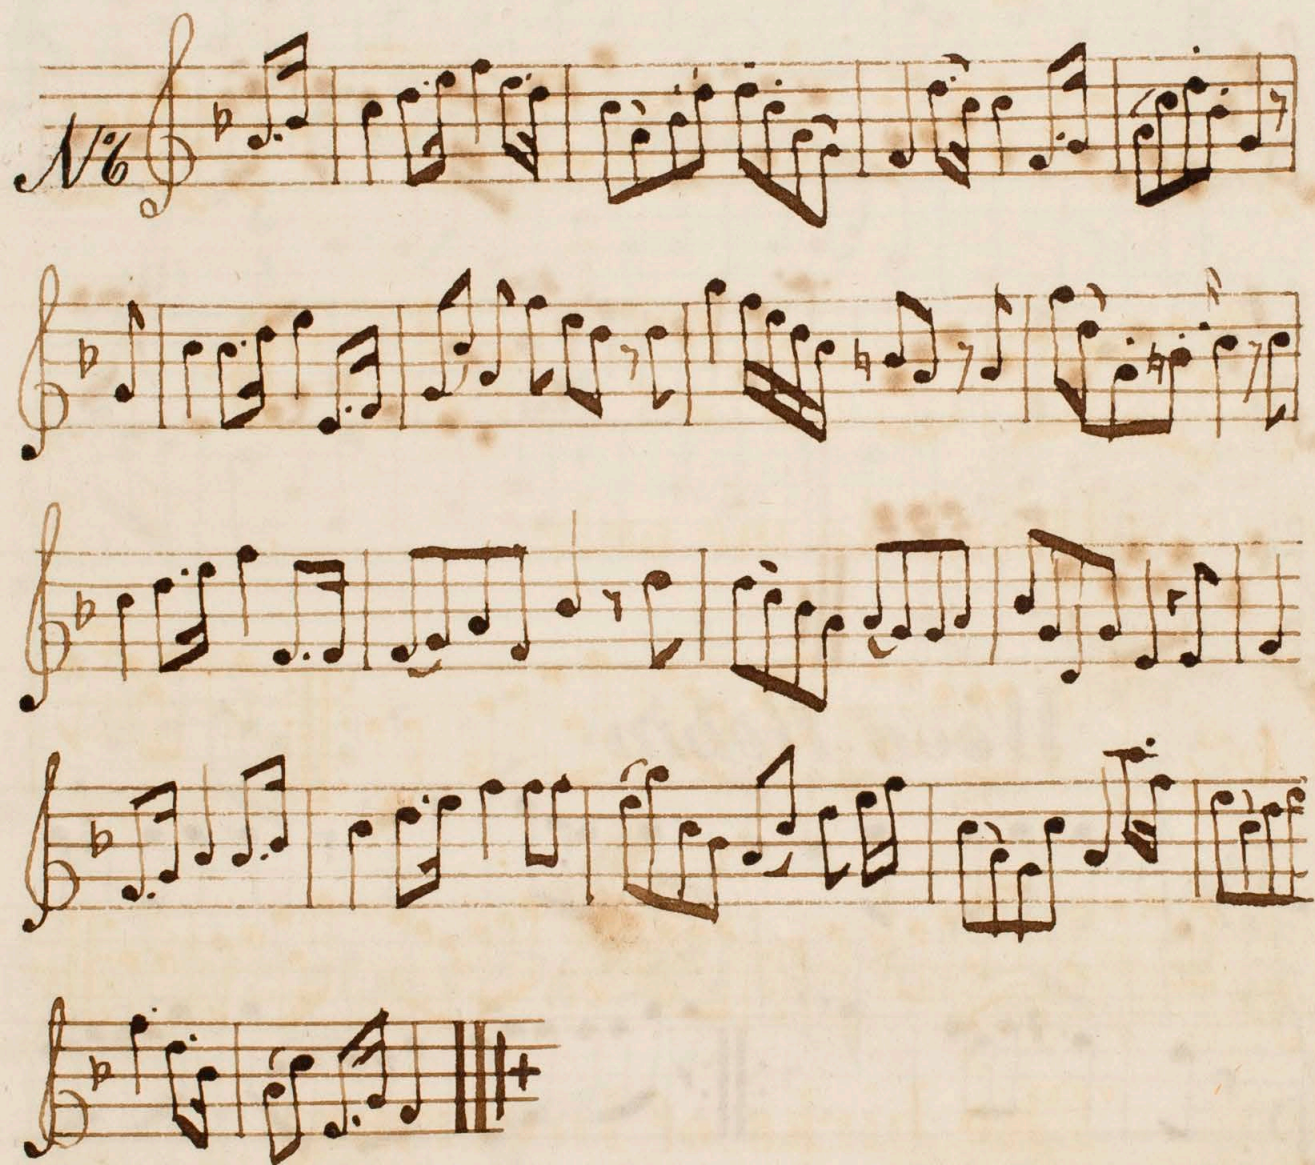 No 6